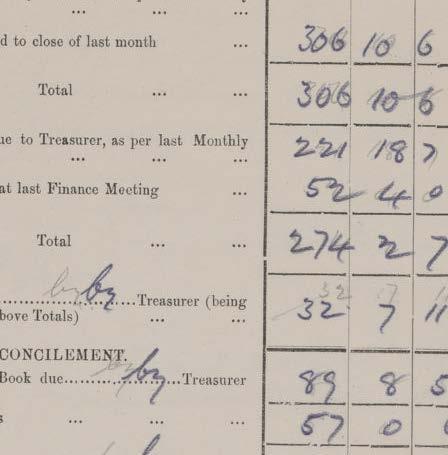 ... ...
d to close of last month ... 306 10 6
Total ... ... 306 10 6
ue to Treasurer, as per last Monthly 221 18 7
... ... ...
at last Finance Meeting ... 52 4 0
Total ... ... 274 2 7
by by Treasurer (being 32 7
bove Totals) ... ... 32 7 11
CONCILEMENT.
Book due by Treasurer 89 8 5
s ... ... ... 57 0